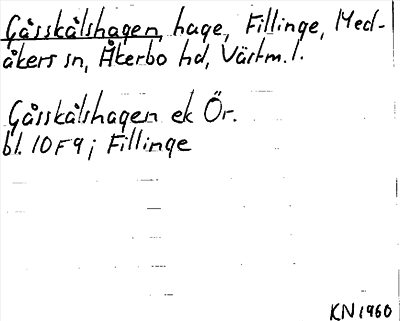 Gåsskålshagen, hage, Fillinge, Med-
åkers sn, Åkerbo hd, Västm. l.
Gåsskålshagen ek Ör.
bl. 10F9; Fillinge
KN 1960